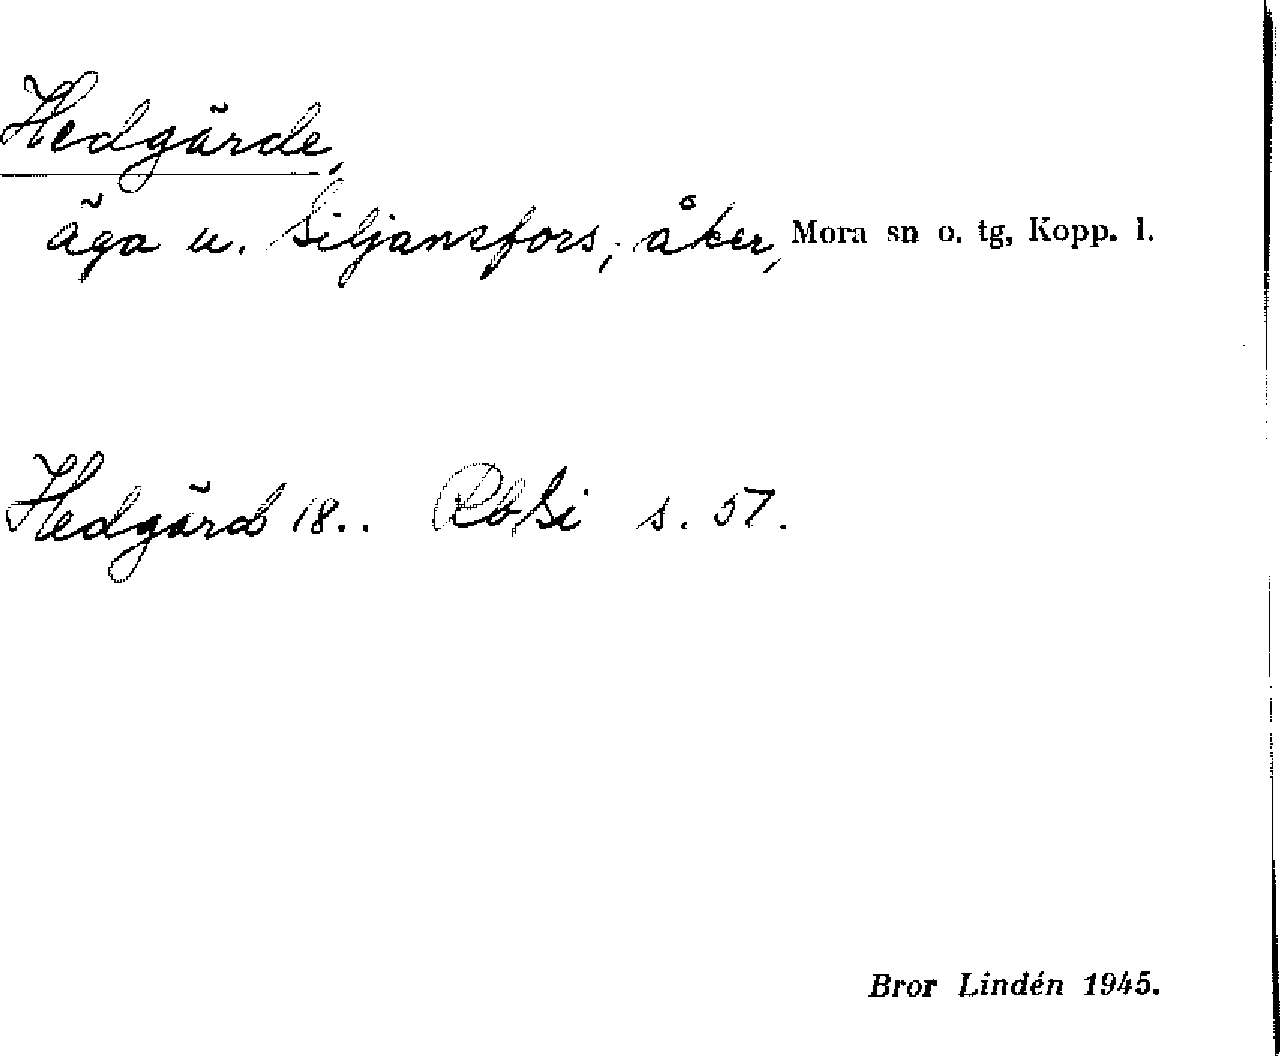 Hedgärde,
äga u. Siljansfors; åker, Mora sn o. tg, Kopp. l.
Hedgärd 18.. RbSi s. 57.
Bror Lindén 1945.